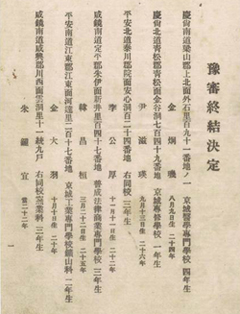 豫審終結決定
慶尙南道梁山郡上北面外石里百九十一番地ノ一 京城醫學專門學校 四年生
金炯璣 八月九日生 二十四年
慶尙北道靑松郡靑松面金谷洞七百四十九番地 京城專修學校 一年生
尹滋瑛 九月十三日生 二十六年
平安北道泰川郡院面安心洞百二十四番地 右同校 三年生
李公厚 十一月十一日生 二十二年
咸鏡南道定平郡朱伊面新興里百四十七番地 普成法律商業專門學校 三年生
韓昌桓 三月二十二日生 二十五年
平安南道江東郡江東面河達里二百十七番地 京城工業專門學校鑛山科 二年生
金大羽 十月十日生 二十年
咸鏡南道咸興郡川西面雲洞里十一統九戶 右同校窯業科 三年生
朱鍾宜 當二十二年
一